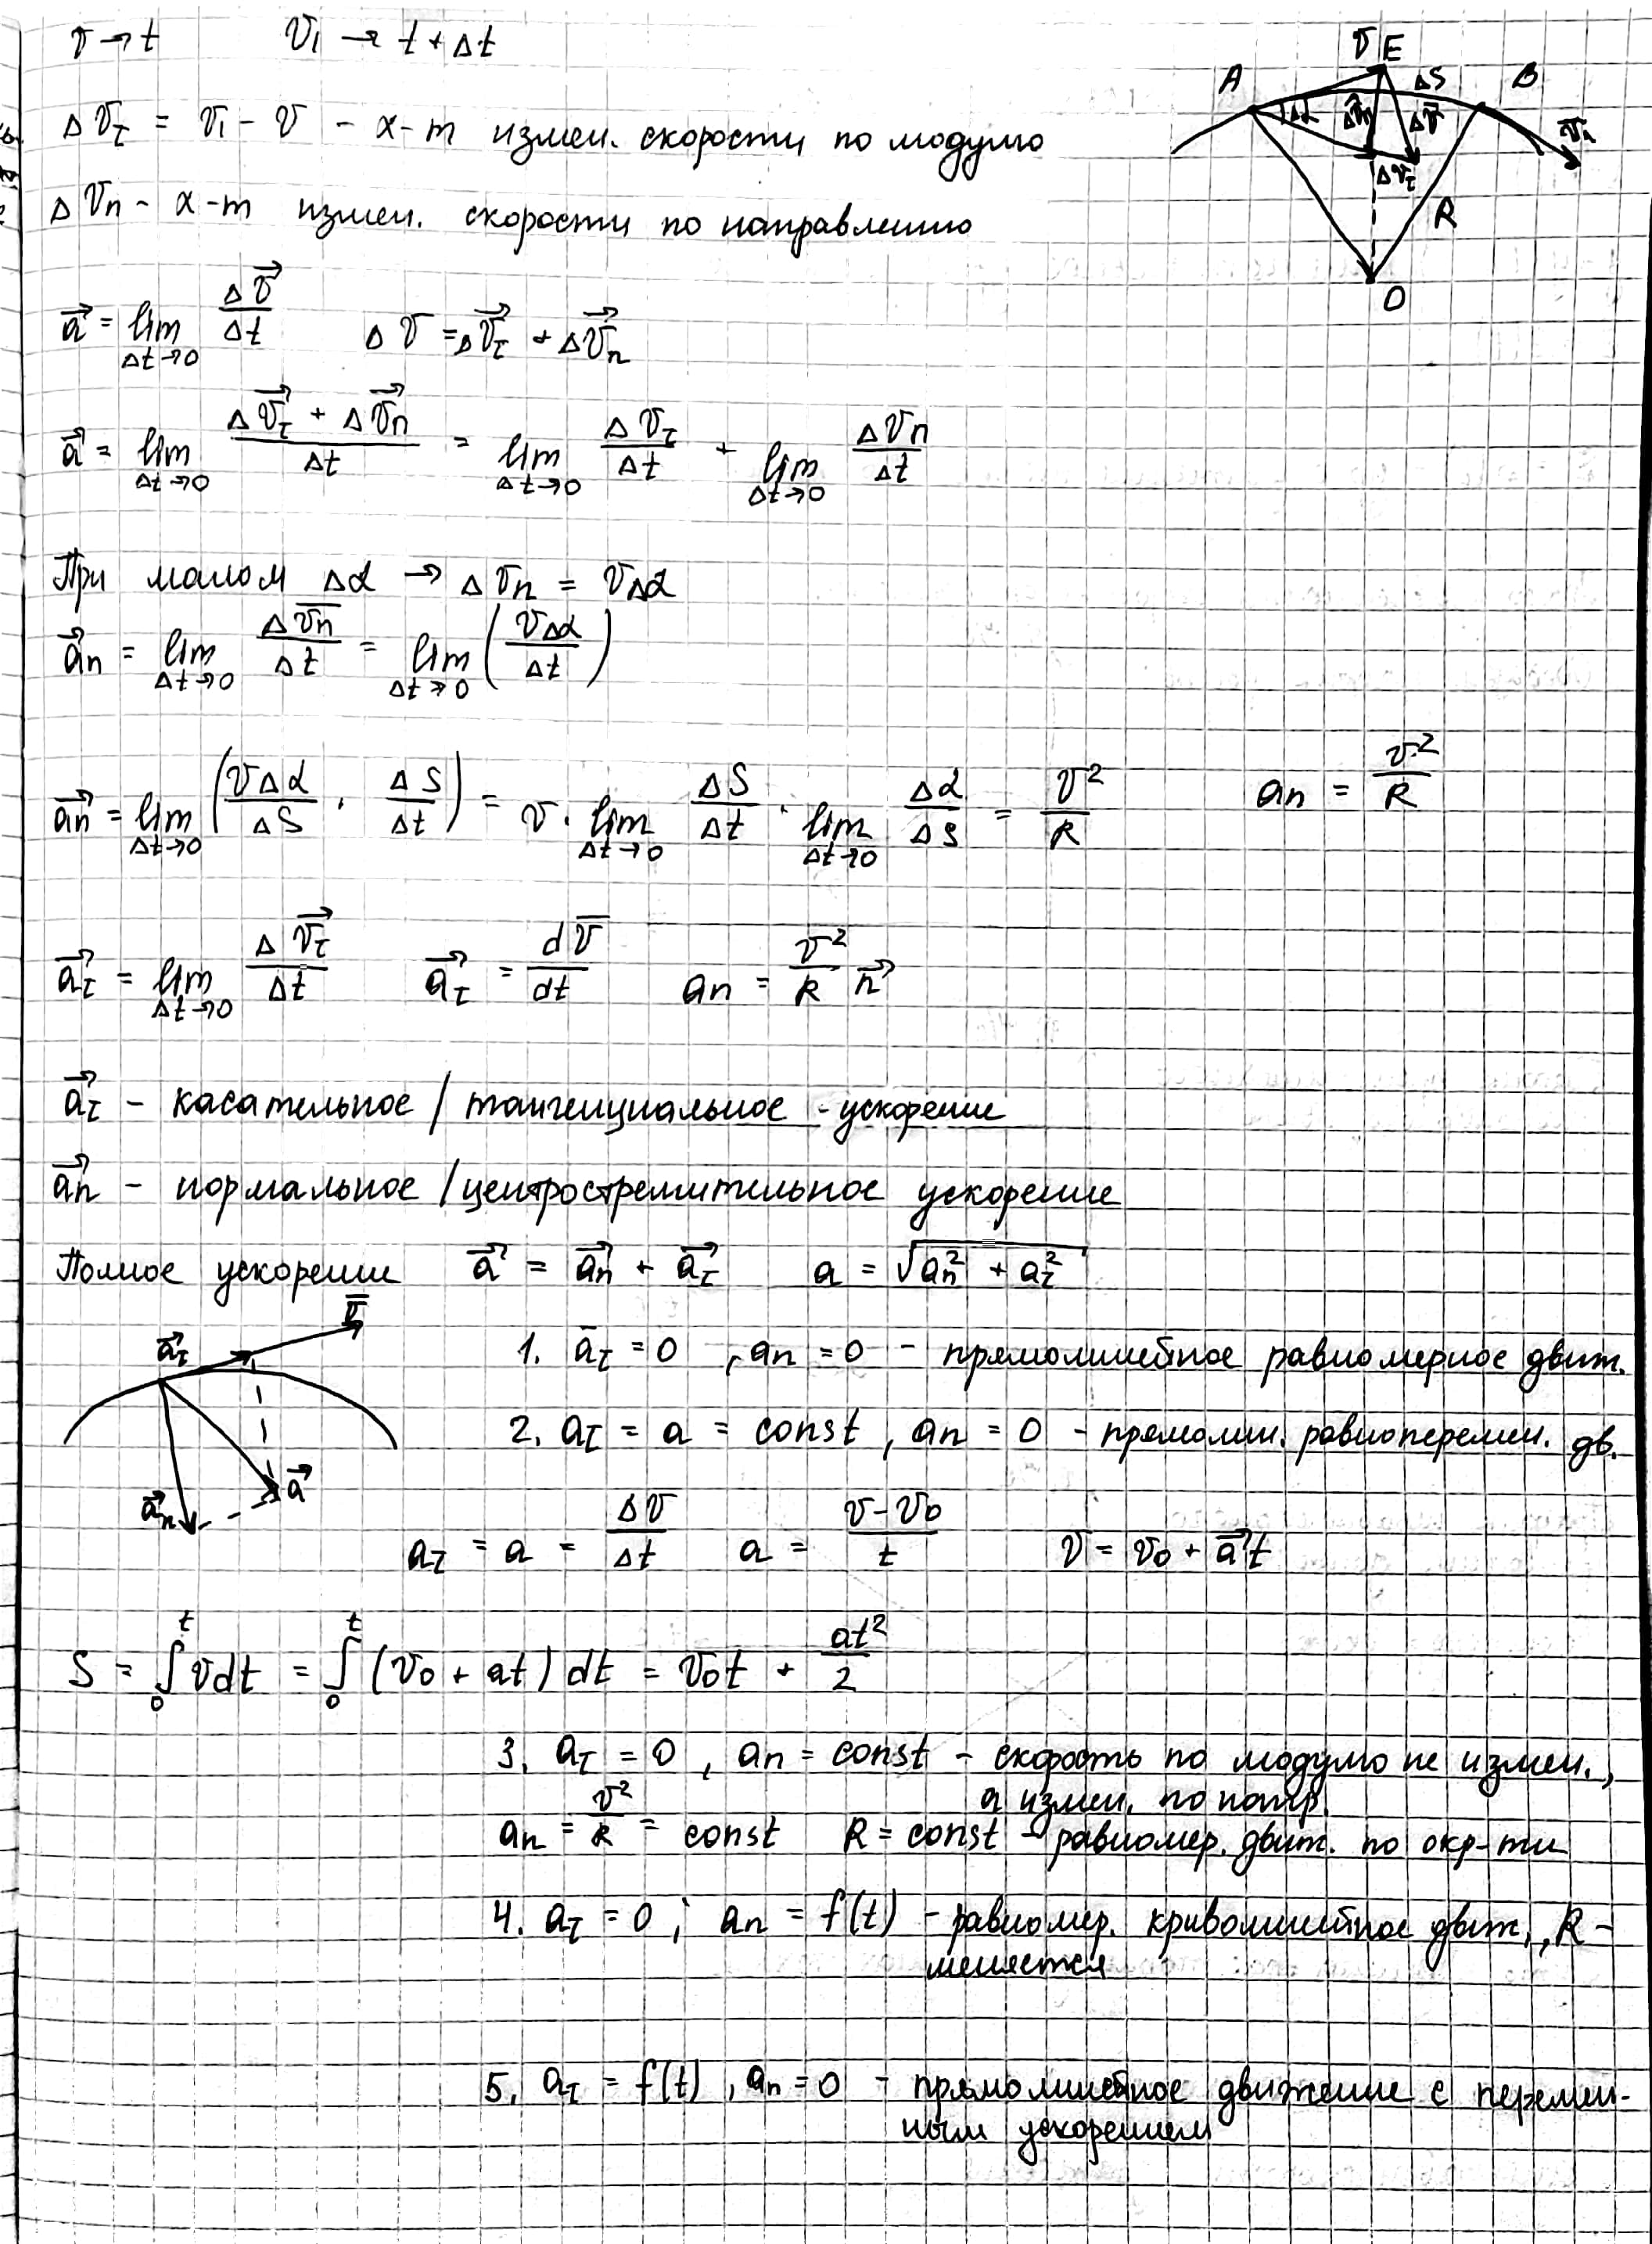 v → t v₁ → t + Δt
Δv_τ = v₁ - v - х-т измен. скорости по модулю
Δv_n - х-т измен. скорости по направлению
A v E ΔS B
Δα Δv_n Δv v₁
Δv_τ
R
O
a⃗ = lim Δt→0 Δv⃗/Δt Δv = Δv⃗_τ + Δv⃗_n
a⃗ = lim Δt→0 (Δv⃗_τ + Δv⃗_n)/Δt = lim Δt→0 Δv_τ/Δt + lim Δt→0 Δv_n/Δt
При малом Δα → Δv_n = vΔα
a⃗_n = lim Δt→0 Δv̅_n/Δt = lim Δt→0 (vΔα/Δt)
a⃗_n = lim Δt→0 (vΔα/ΔS · ΔS/Δt) = v · lim Δt→0 ΔS/Δt · lim Δt→0 Δα/ΔS = v²/R a_n = v²/R
a⃗_τ = lim Δt→0 Δv⃗_τ/Δt a⃗_τ = dv̅/dt a_n = v²/R n⃗
a⃗_τ - касательное / тангенциальное - ускорение
a⃗_n - нормальное / центростремительное ускорение
Полное ускорение a⃗ = a⃗_n + a⃗_τ a = √(a_n² + a_τ²)
a⃗_τ v̅
a⃗_n a⃗
1. a̅_τ = 0, a_n = 0 - прямолинейное равномерное движ.
2. a_τ = a = const, a_n = 0 - прямолин. равноперемен. дв.
a_τ = a = Δv/Δt a = (v - v₀)/t v = v₀ + a⃗t
S = ∫₀ᵗ vdt = ∫₀ᵗ (v₀ + at) dt = v₀t + at²/2
3. a_τ = 0, a_n = const - скорость по модулю не измен.,
а измен. по напр.
a_n = v²/R = const R = const - равномер. движ. по окр-ти
4. a_τ = 0; a_n = f(t) - равномер. криволинейное движ., R -
меняется
5. a_τ = f(t), a_n = 0 - прямолинейное движение с перемен-
ным ускорением